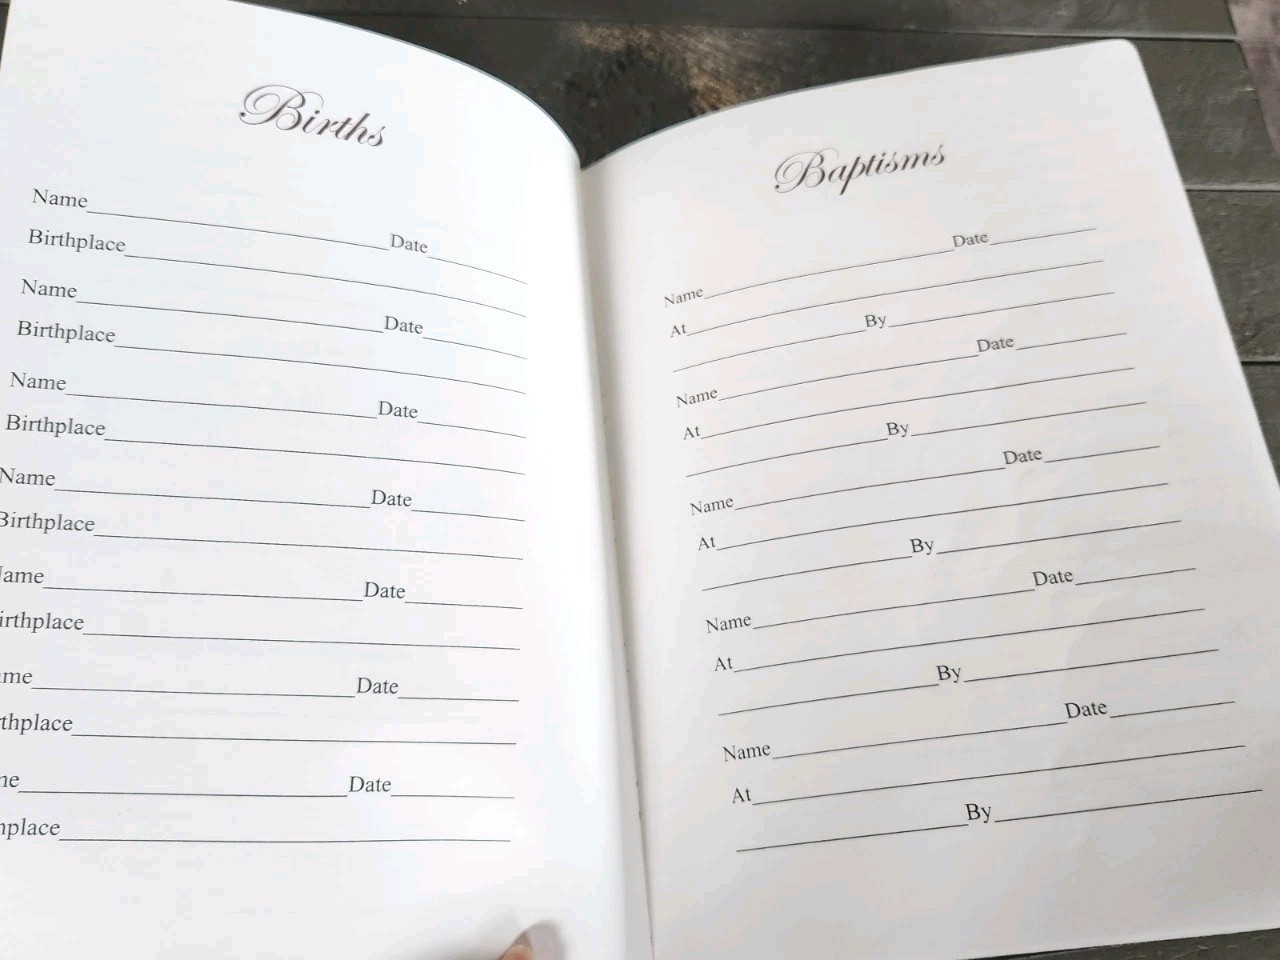 Births
Name Date
Birthplace
Name Date
Birthplace
Name Date
Birthplace
Name Date
Birthplace
ame Date
irthplace
me Date
thplace
ne Date
nplace
Baptisms
Name Date
At
By
Name Date
At
By
Name Date
At
By
Name Date
At
By
Name Date
At
By